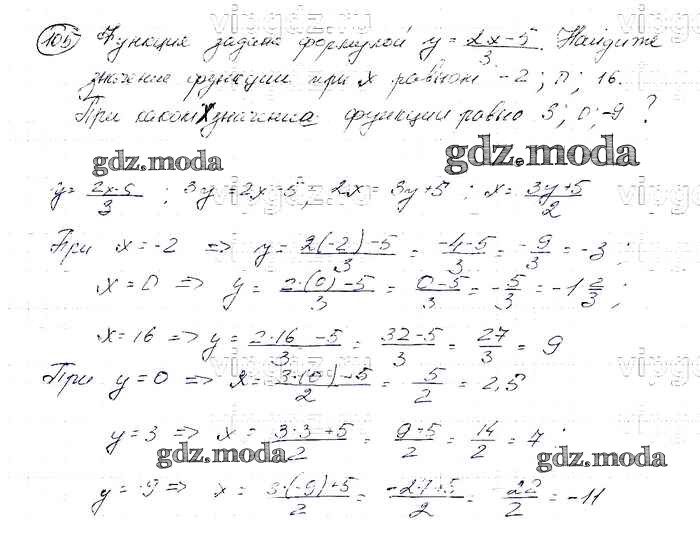 105 Функция задана формулой y = (2x-5)/3. Найдите
значение функции при x равном -2; 0; 16.
При каком x значение функции равно 3; 0; -9 ?
gdz.moda gdz.moda
y = (2x-5)/3 ; 3y = 2x-5 ; 2x = 3y+5 ; x = (3y+5)/2
При x = -2 => y = (2(-2)-5)/3 = (-4-5)/3 = -9/3 = -3 ;
x = 0 => y = (2·(0)-5)/3 = (0-5)/3 = -5/3 = -1 2/3 ;
x = 16 => y = (2·16-5)/3 = (32-5)/3 = 27/3 = 9
vipgdz.ru
При y = 0 => x = (3·(0)+5)/2 = 5/2 = 2,5
y = 3 => x = (3·3+5)/2 = (9+5)/2 = 14/2 = 7 ;
gdz.moda gdz.moda
y = -9 => x = (3·(-9)+5)/2 = (-27+5)/2 = -22/2 = -11